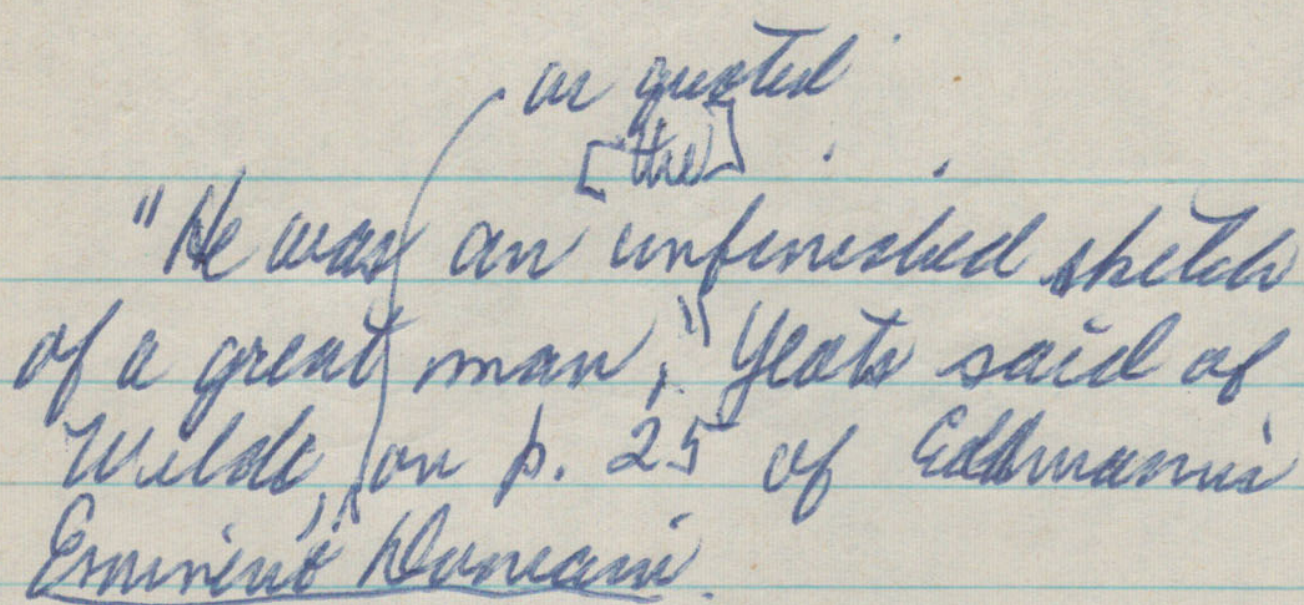 as quoted
[the]
"He was an unfinished sketch
of a great man," Yeats said of
Wilde, on p. 25 of Ellmann's
Eminent Domain.